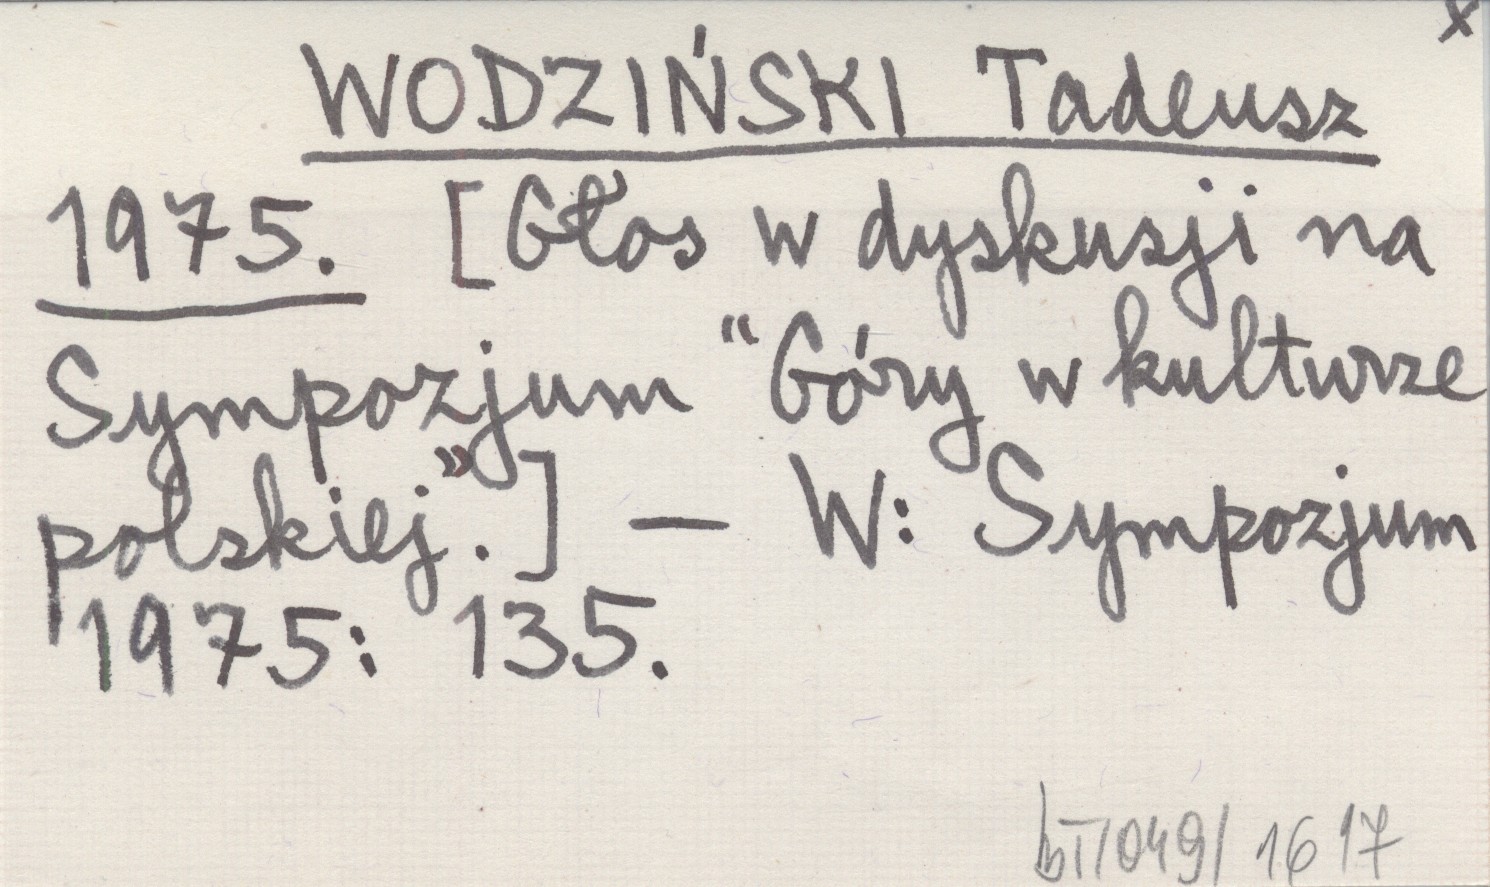 x
WODZIŃSKI Tadeusz
1975. [Głos w dyskusji na
Sympozjum "Góry w kulturze
polskiej".] — W: Sympozjum
1975: 135.
bT/049/ 1617